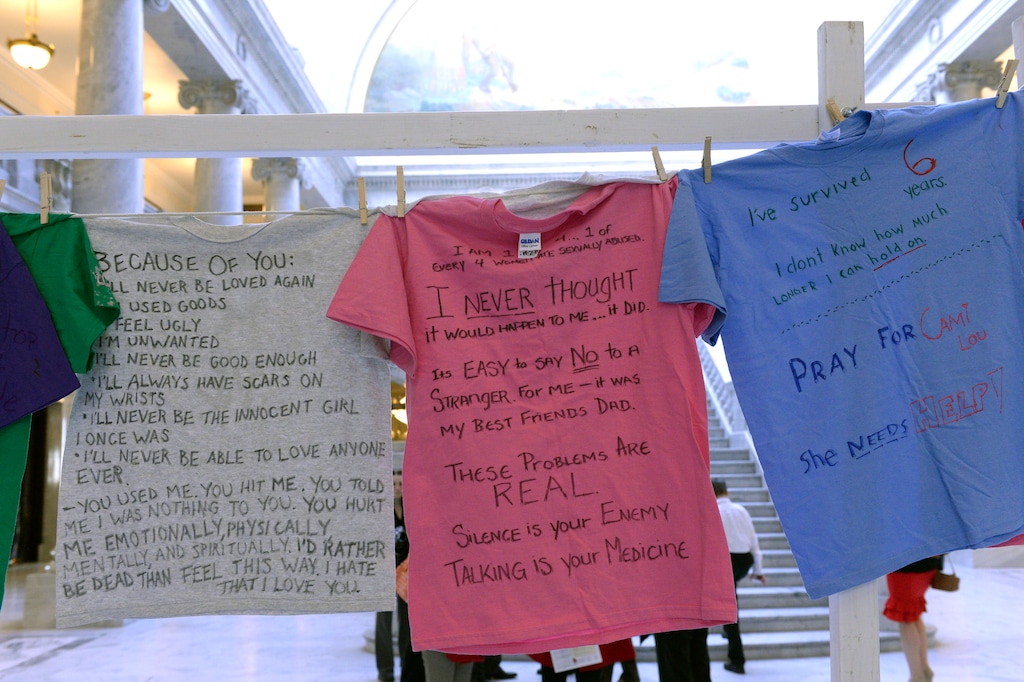 BECAUSE OF YOU:
I'LL NEVER BE LOVED AGAIN
USED GOODS
FEEL UGLY
I'M UNWANTED
I'LL NEVER BE GOOD ENOUGH
•I'LL ALWAYS HAVE SCARS ON
MY WRISTS
•I'LL NEVER BE THE INNOCENT GIRL
I ONCE WAS
•I'LL NEVER BE ABLE TO LOVE ANYONE
EVER.
-YOU USED ME. YOU HIT ME. YOU TOLD
ME I WAS NOTHING TO YOU. YOU HURT
ME EMOTIONALLY, PHYSICALLY,
MENTALLY, AND SPIRITUALLY. I'D RATHER
BE DEAD THAN FEEL THIS WAY. I HATE
THAT I LOVE YOU.
GILDAN
I AM 1 ... 1 OF
EVERY 4 WOMEN ARE SEXUALLY ABUSED.
I NEVER THOUGHT
iT WOULD HAPPEN TO ME...iT DiD.
ITS EASY to SAY No to A
STRANGER. FOR ME - it WAS
MY BEST FRIENDS DAD.
THESE PROBLEMS ARE
REAL.
SILENCE iS YOUR ENEMY
TALKING iS YOUR MEDICINE
I've survived 6
years.
I dont Know how much
LONGER I can hold on.
PRAY FOR CAMi
LOU
She NEEDS HELP!